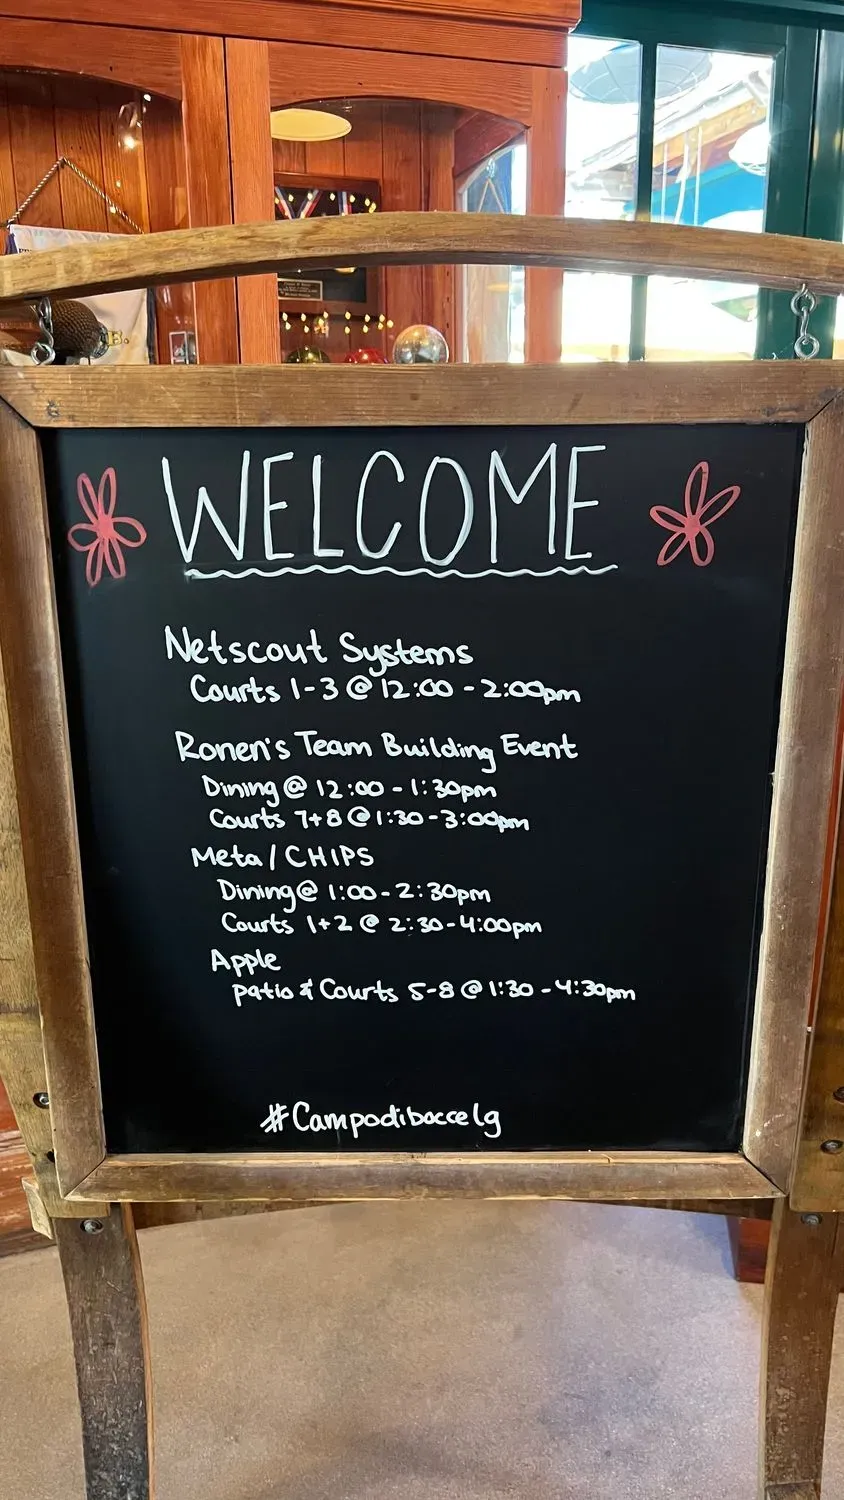 WELCOME
Netscout Systems
Courts 1-3 @ 12:00 - 2:00pm
Ronen's Team Building Event
Dining @ 12:00 - 1:30pm
Courts 7+8 @ 1:30-3:00pm
Meta/CHIPS
Dining @ 1:00-2:30pm
Courts 1+2 @ 2:30-4:00pm
Apple
Patio & Courts 5-8 @ 1:30 - 4:30pm
#Campodiboccelg